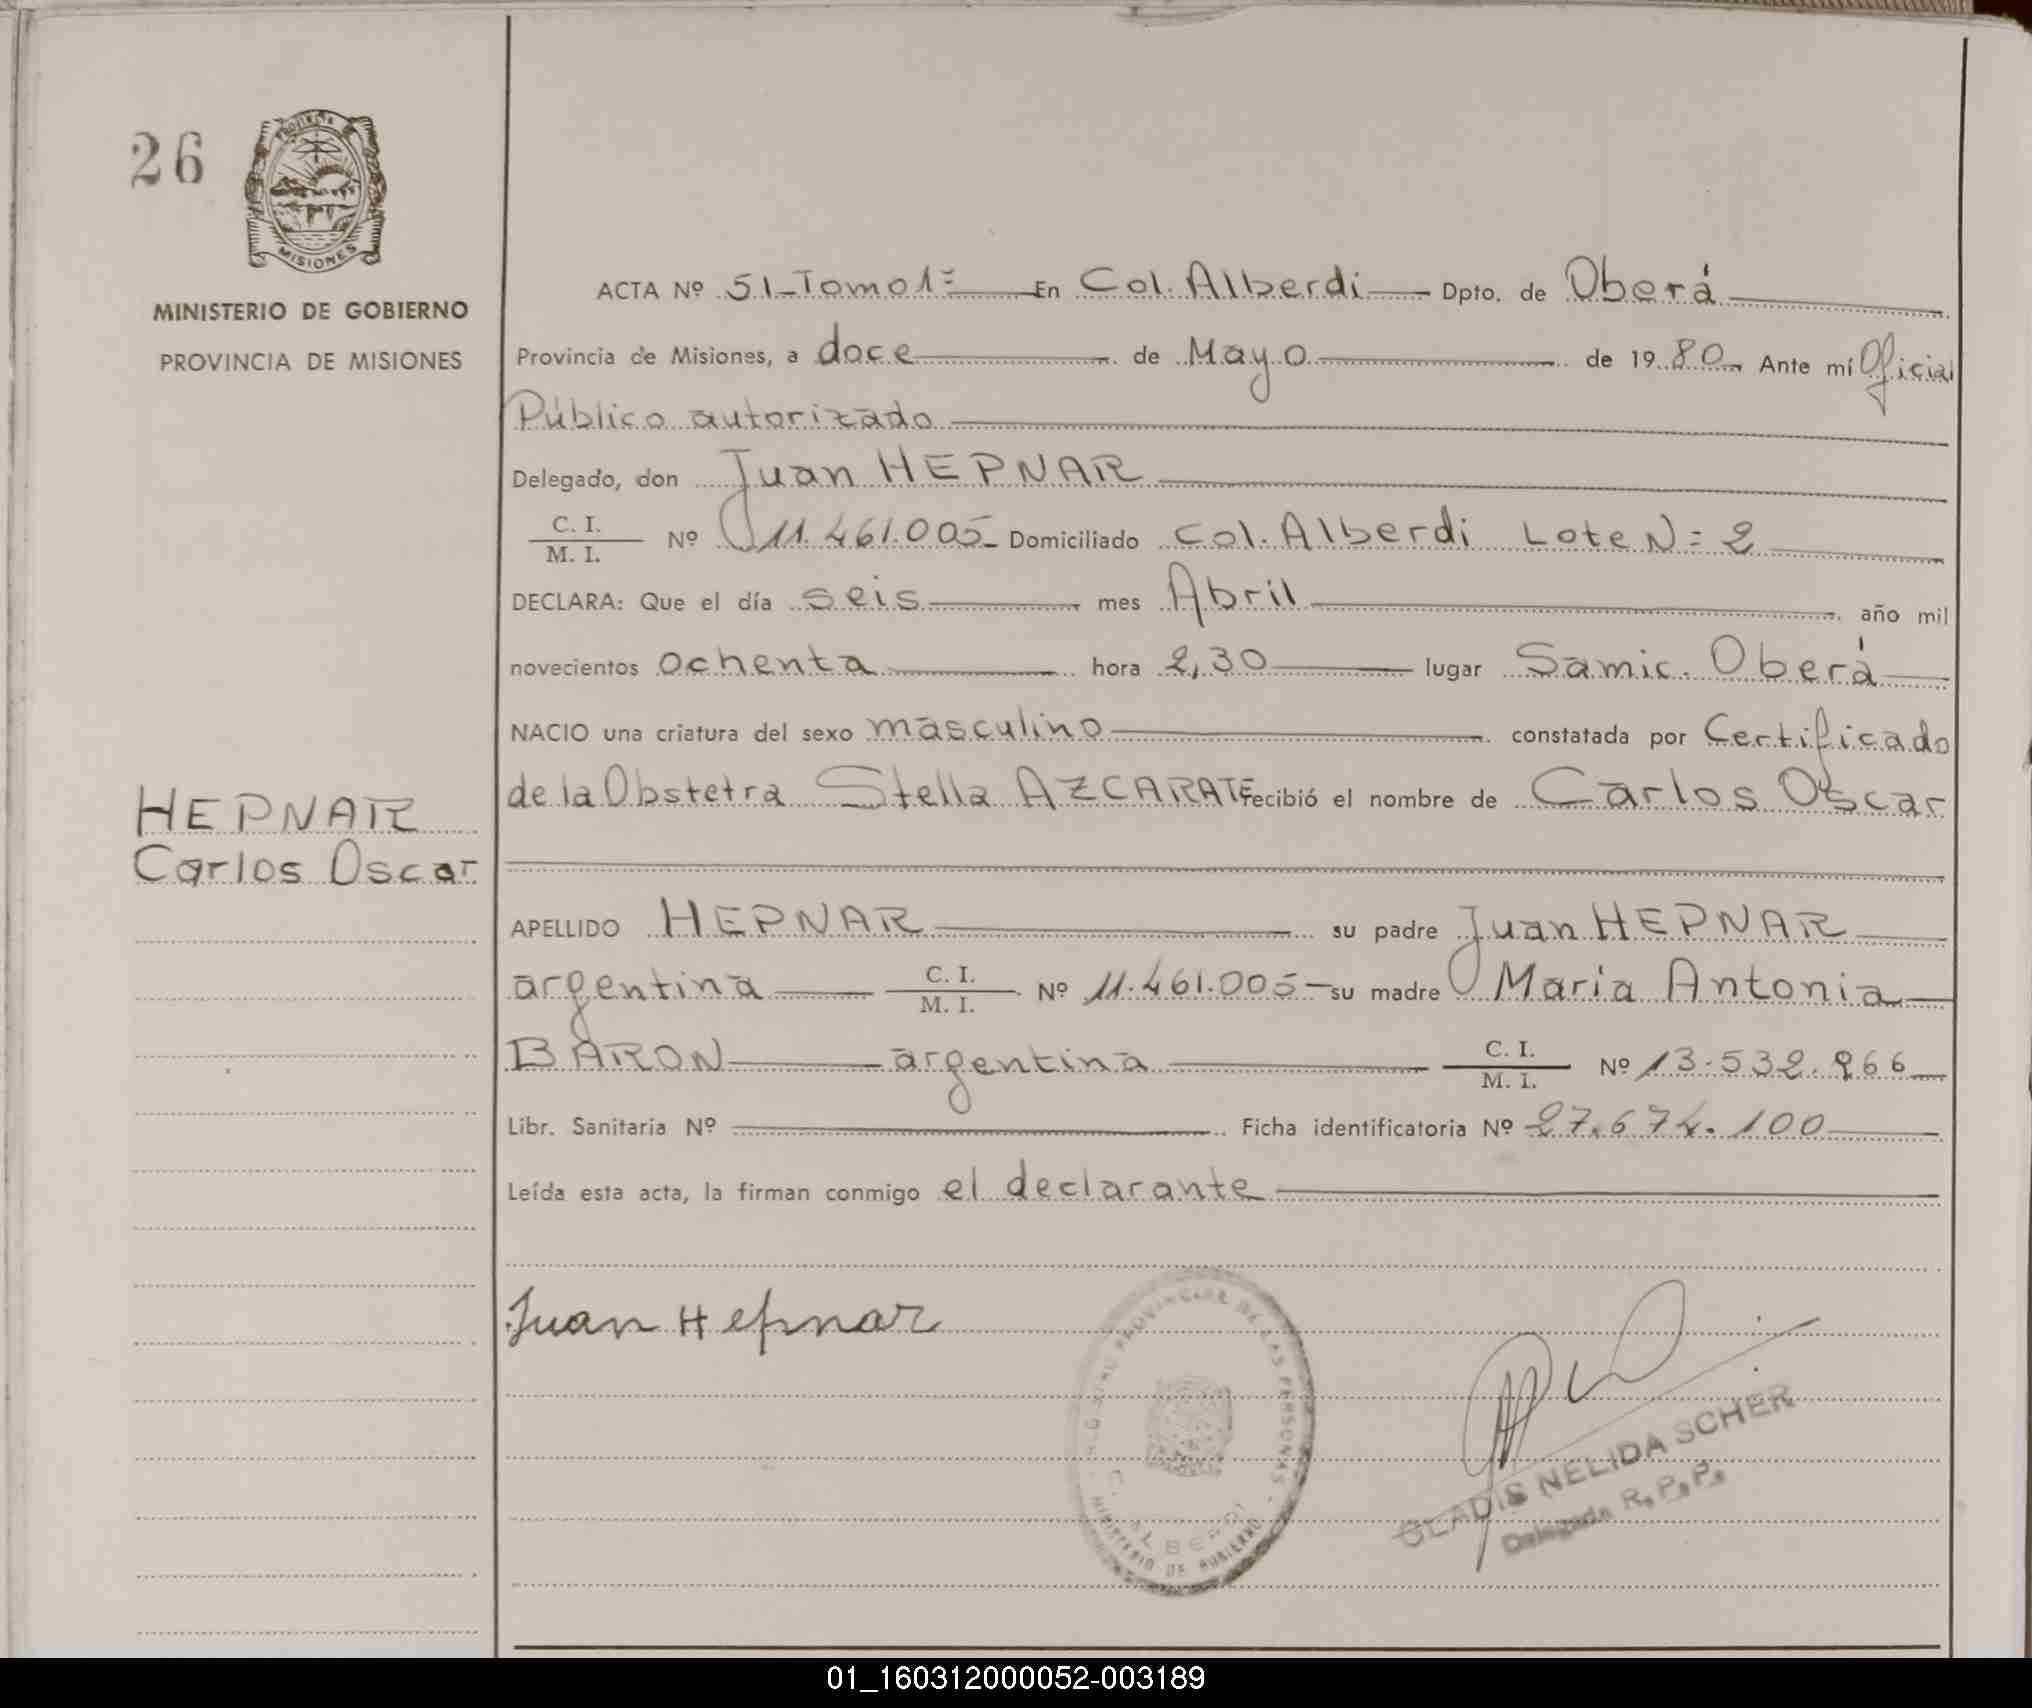 26
PROVINCIA
MISIONES
MINISTERIO DE GOBIERNO
PROVINCIA DE MISIONES
HEPNAR
Carlos Oscar
ACTA Nº 51-Tomo 1º En Col. Alberdi Dpto. de Oberá
Provincia de Misiones, a doce de Mayo de 1980 Ante mí Oficial
Público autorizado
Delegado, don Juan HEPNAR
C. I.
M. I.
Nº 11.461.005 Domiciliado Col. Alberdi Lote N= 2
DECLARA: Que el día seis mes Abril año mil
novecientos ochenta hora 2,30 lugar Samic. Oberá
NACIO una criatura del sexo masculino constatada por Certificado
de la Obstetra Stella AZCARATE recibió el nombre de Carlos Oscar
APELLIDO HEPNAR su padre Juan HEPNAR
argentina C. I. M. I. Nº 11.461.005 su madre Maria Antonia
BARON argentina C. I. M. I. Nº 13.532.266
Libr. Sanitaria Nº Ficha identificatoria Nº 27.674.100
Leída esta acta, la firman conmigo el declarante
Juan Hepnar
REGISTRO PROVINCIAL DE LAS PERSONAS
C. ALBERDI
MINISTERIO DE GOBIERNO
GLADIS NELIDA SCHER
Delegada R.P.P.
01_160312000052-003189